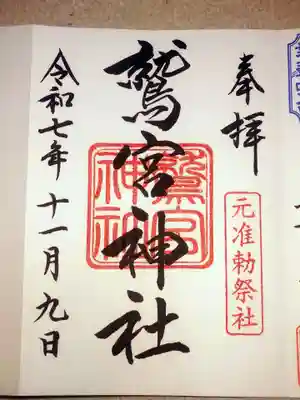 奉拝
元准勅祭社
鷲宮神社
鷲宮神社
令和七年十一月九日